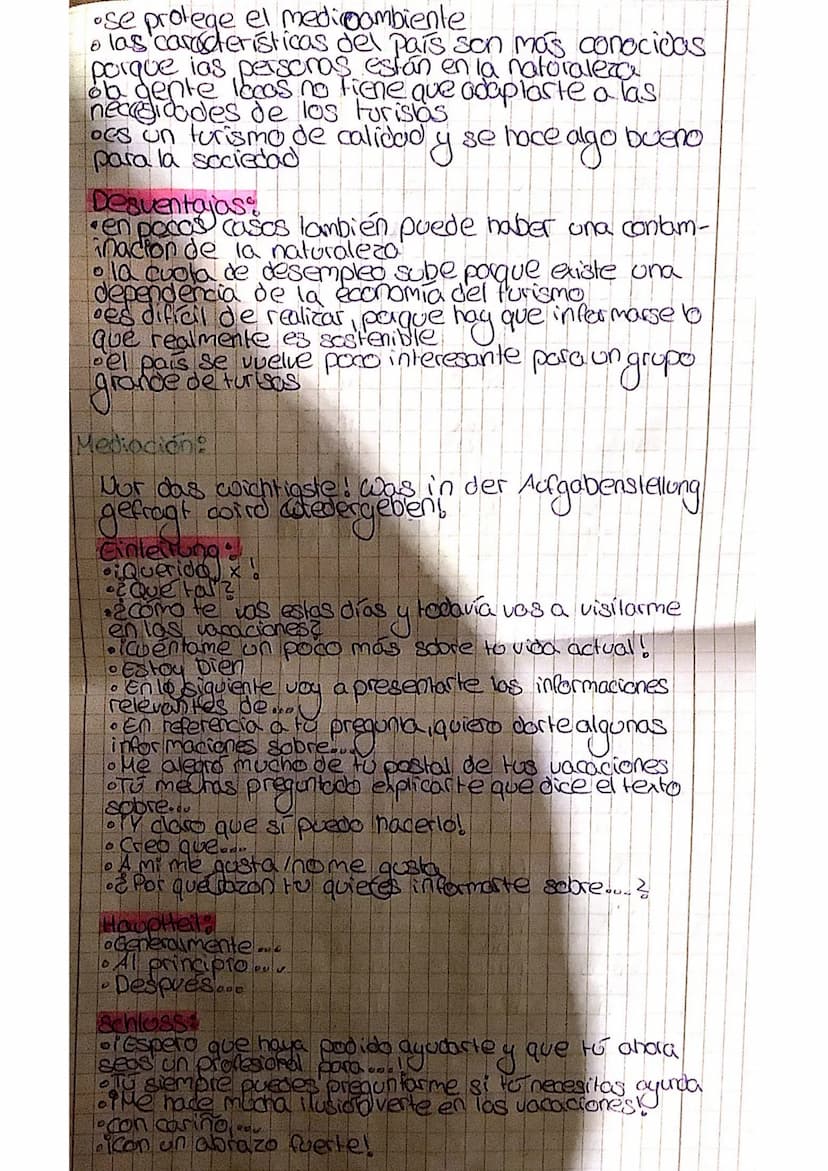 •se protege el medioambiente
• las características del país son más conocidas
porque las personas están en la naturaleza
•la gente locas no tiene que adaptarte a las
necesidades de los turistas
•es un turismo de calidad y se hace algo bueno
para la sociedad
Desventajas:
•en pocos casos también puede haber una contam-
inación de la naturaleza
• la cuota de desempleo sube porque existe una
dependencia de la economía del turismo
•es difícil de realizar, porque hay que infermarse lo
que realmente es sostenible
•el país se vuelve poco interesante para un grupo
grande de turisas
Mediación:
Nur das wichtigste! Was in der Aufgabenstellung
gefragt wird wiedergeben!
Einleitung:
•¡Querida x!
•¿Qué tal?
•¿cómo te vas estas días y todavía vas a visitarme
en las vacaciones?
•¡Cuéntame un poco más sobre tu vida actual!
•Estoy bien
•En lo siguiente voy a presentarte las informaciones
relevantes de...
•En referencia a tu pregunta, quiero darte algunas
informaciones sobre...
•Me alegro mucho de tu postal de tus vacaciones
•Tú me has preguntado explicarte que dice el texto
sobre...
•¡Y claro que sí puedo hacerlo!
•Creo que...
•A mi me gusta/no me gusta
•¿Por qué razon tu quieres informarte sobre....?
Hauptteil:
•Generalmente...
•Al principio....
•Después...
Schluss:
•¡Espero que haya podido ayudarte y que tú ahora
seas un profesional para...!
•Tú siempre puedes preguntarme si tú necesitas ayuda
•¡Me hace mucha ilusión verte en las vacaciones!
•con cariño,...
•¡Con un abrazo fuerte!